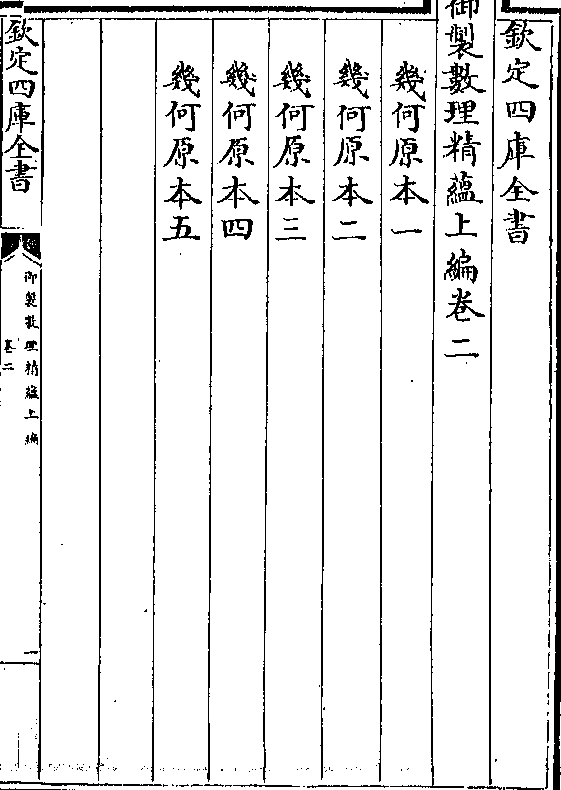 欽定四庫全書
御製數理精蘊上編卷二
幾何原本一
幾何原本二
幾何原本三
幾何原本四
幾何原本五
欽定四庫全書
御製數理精蘊上編
卷二
一